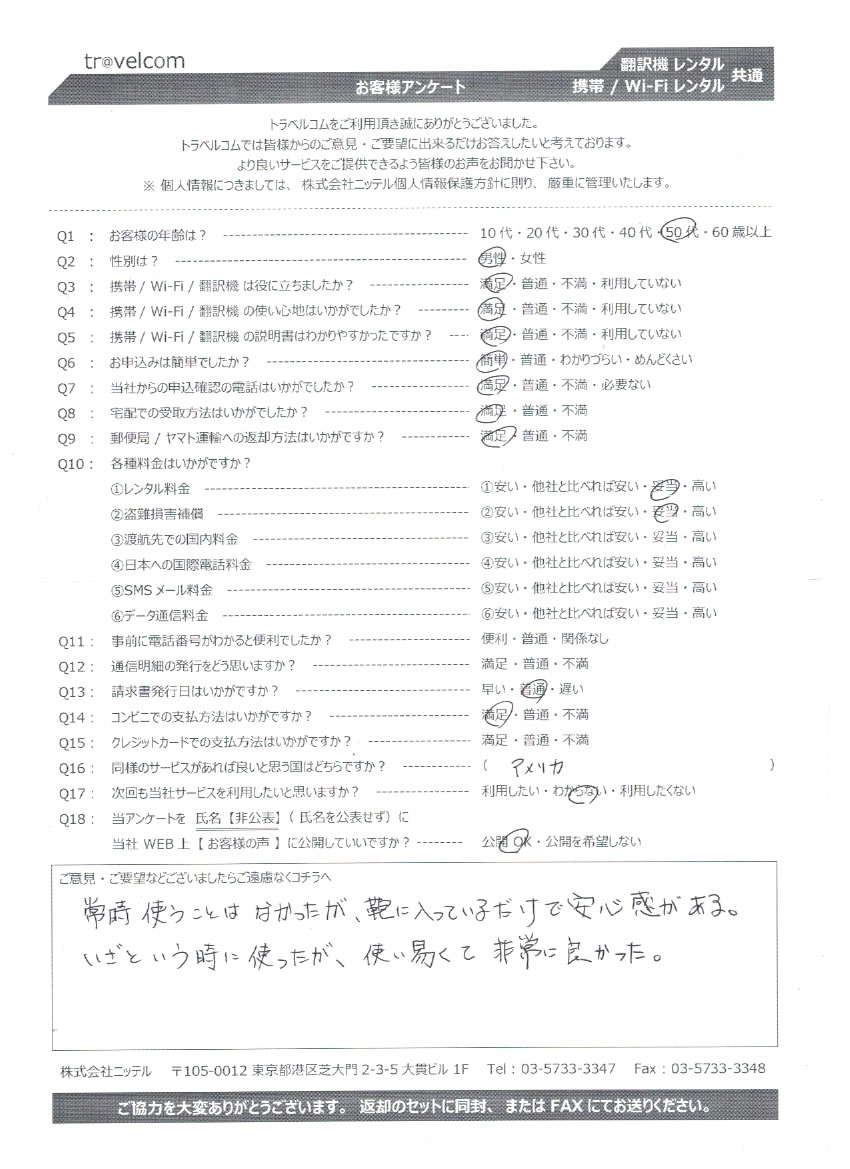 tr@velcom
翻訳機 レンタル
携帯 / Wi-Fi レンタル
共通
お客様アンケート
トラベルコムをご利用頂き誠にありがとうございました。
トラベルコムでは皆様からのご意見・ご要望に出来るだけお答えしたいと考えております。
より良いサービスをご提供できるよう皆様のお声をお聞かせ下さい。
※ 個人情報につきましては、 株式会社ニッテル個人情報保護方針に則り、 厳重に管理いたします。
Q1 : お客様の年齢は？ 10代・20代・30代・40代・50代・60歳以上
Q2 : 性別は？ 男性・女性
Q3 : 携帯 / Wi-Fi / 翻訳機 は役に立ちましたか？ 満足・普通・不満・利用していない
Q4 : 携帯 / Wi-Fi / 翻訳機 の使い心地はいかがでしたか？ 満足・普通・不満・利用していない
Q5 : 携帯 / Wi-Fi / 翻訳機 の説明書はわかりやすかったですか？ 満足・普通・不満・利用していない
Q6 : お申込みは簡単でしたか？ 簡単・普通・わかりづらい・めんどくさい
Q7 : 当社からの申込確認の電話はいかがでしたか？ 満足・普通・不満・必要ない
Q8 : 宅配での受取方法はいかがでしたか？ 満足・普通・不満
Q9 : 郵便局 / ヤマト運輸への返却方法はいかがですか？ 満足・普通・不満
Q10 : 各種料金はいかがですか？
①レンタル料金 ①安い・他社と比べれば安い・妥当・高い
②盗難損害補償 ②安い・他社と比べれば安い・妥当・高い
③渡航先での国内料金 ③安い・他社と比べれば安い・妥当・高い
④日本への国際電話料金 ④安い・他社と比べれば安い・妥当・高い
⑤SMSメール料金 ⑤安い・他社と比べれば安い・妥当・高い
⑥データ通信料金 ⑥安い・他社と比べれば安い・妥当・高い
Q11 : 事前に電話番号がわかると便利でしたか？ 便利・普通・関係なし
Q12 : 通信明細の発行をどう思いますか？ 満足・普通・不満
Q13 : 請求書発行日はいかがですか？ 早い・普通・遅い
Q14 : コンビニでの支払方法はいかがですか？ 満足・普通・不満
Q15 : クレジットカードでの支払方法はいかがですか？ 満足・普通・不満
Q16 : 同様のサービスがあれば良いと思う国はどちらですか？ ( アメリカ )
Q17 : 次回も当社サービスを利用したいと思いますか？ 利用したい・わからない・利用したくない
Q18 : 当アンケートを 氏名【非公表】( 氏名を公表せず ) に
当社 WEB 上【 お客様の声 】に公開していいですか？ 公開 OK・公開を希望しない
ご意見・ご要望などございましたらご遠慮なくコチラへ
常時使うことはなかったが、鞄に入っているだけで安心感がある。
いざという時に使ったが、使い易くて非常に良かった。
株式会社ニッテル 〒105-0012 東京都港区芝大門 2-3-5 大貫ビル 1F Tel : 03-5733-3347 Fax : 03-5733-3348
ご協力を大変ありがとうございます。 返却のセットに同封、 または FAX にてお送りください。